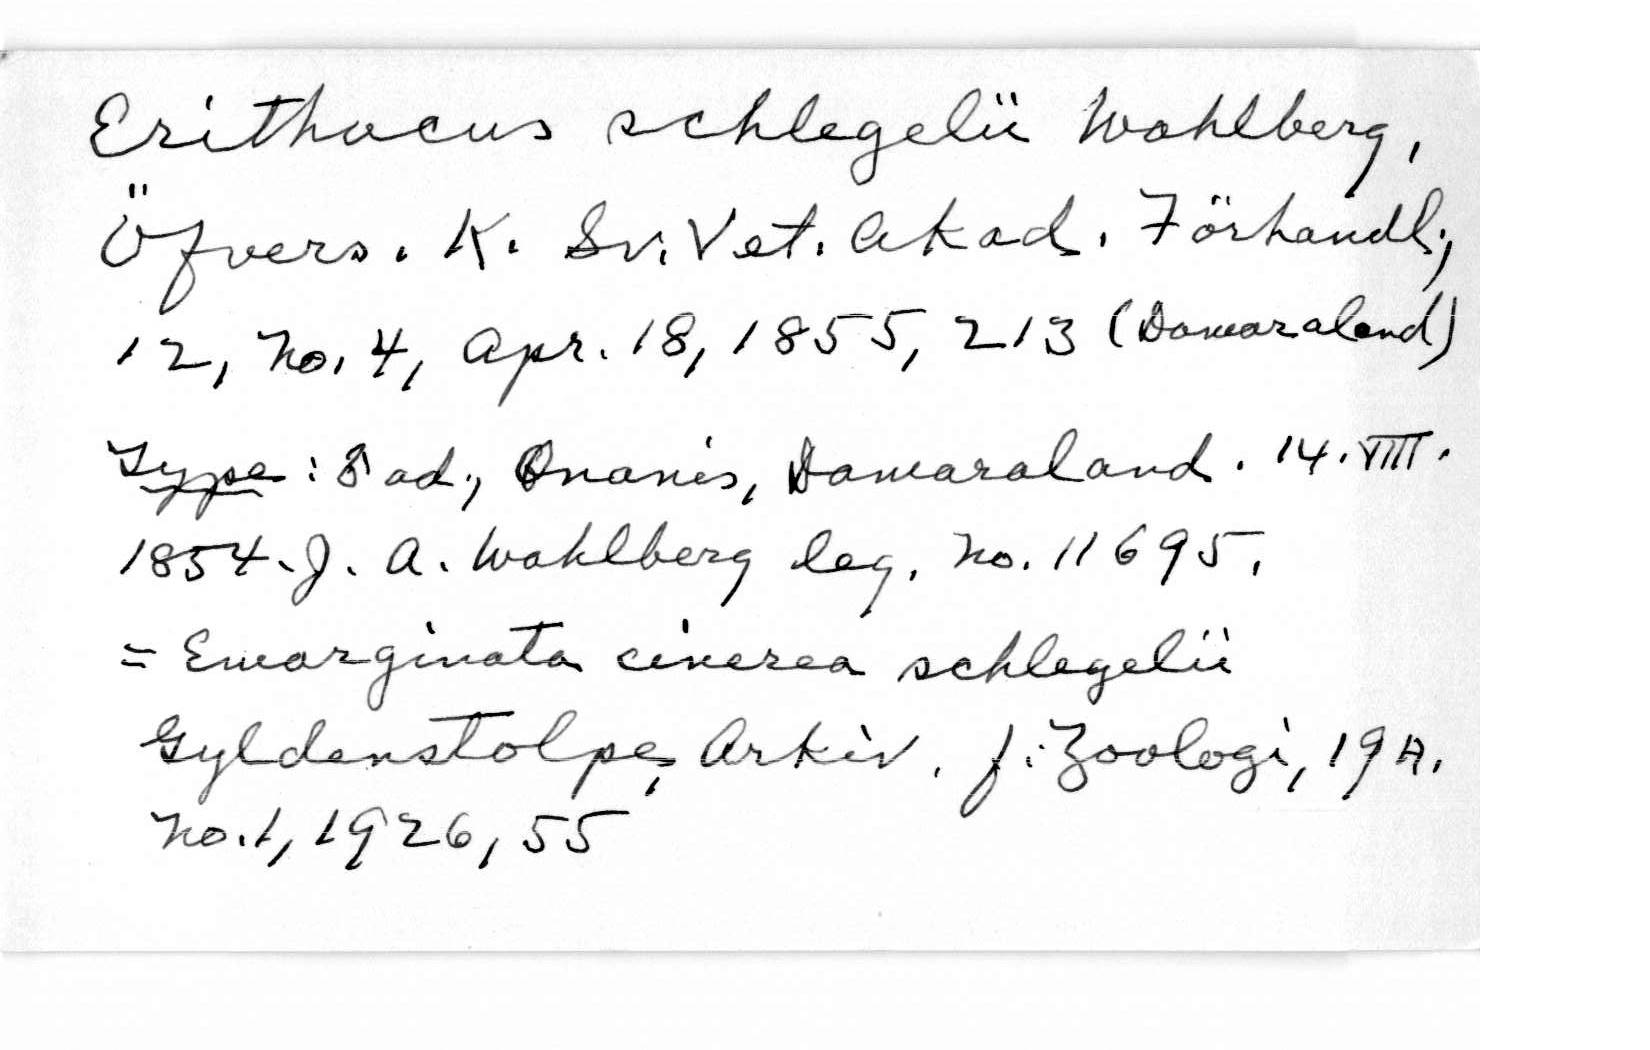 Erithacus schlegelii Wahlberg,
Öfvers. K. Sv. Vet. Akad. Förhandl.,
12, no. 4, Apr. 18, 1855, 213 (Damaraland)
Type: ad., Onanis, Damaraland. 14. VIII.
1854. J. A. Wahlberg leg. no. 11695.
= Emarginata cinerea schlegelii
Gyldenstolpe, Arkiv. f. Zoologi, 19A,
no. 1, 1926, 55